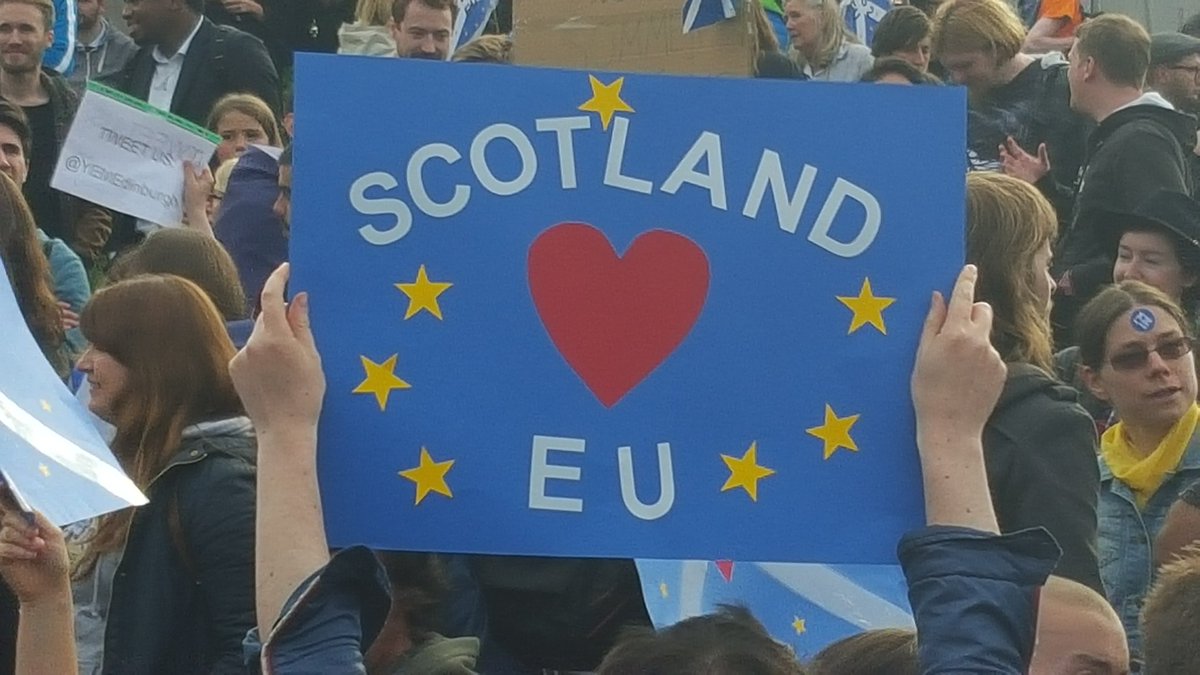 TWEET US
@YIEMEdinburgh
SCOTLAND
EU